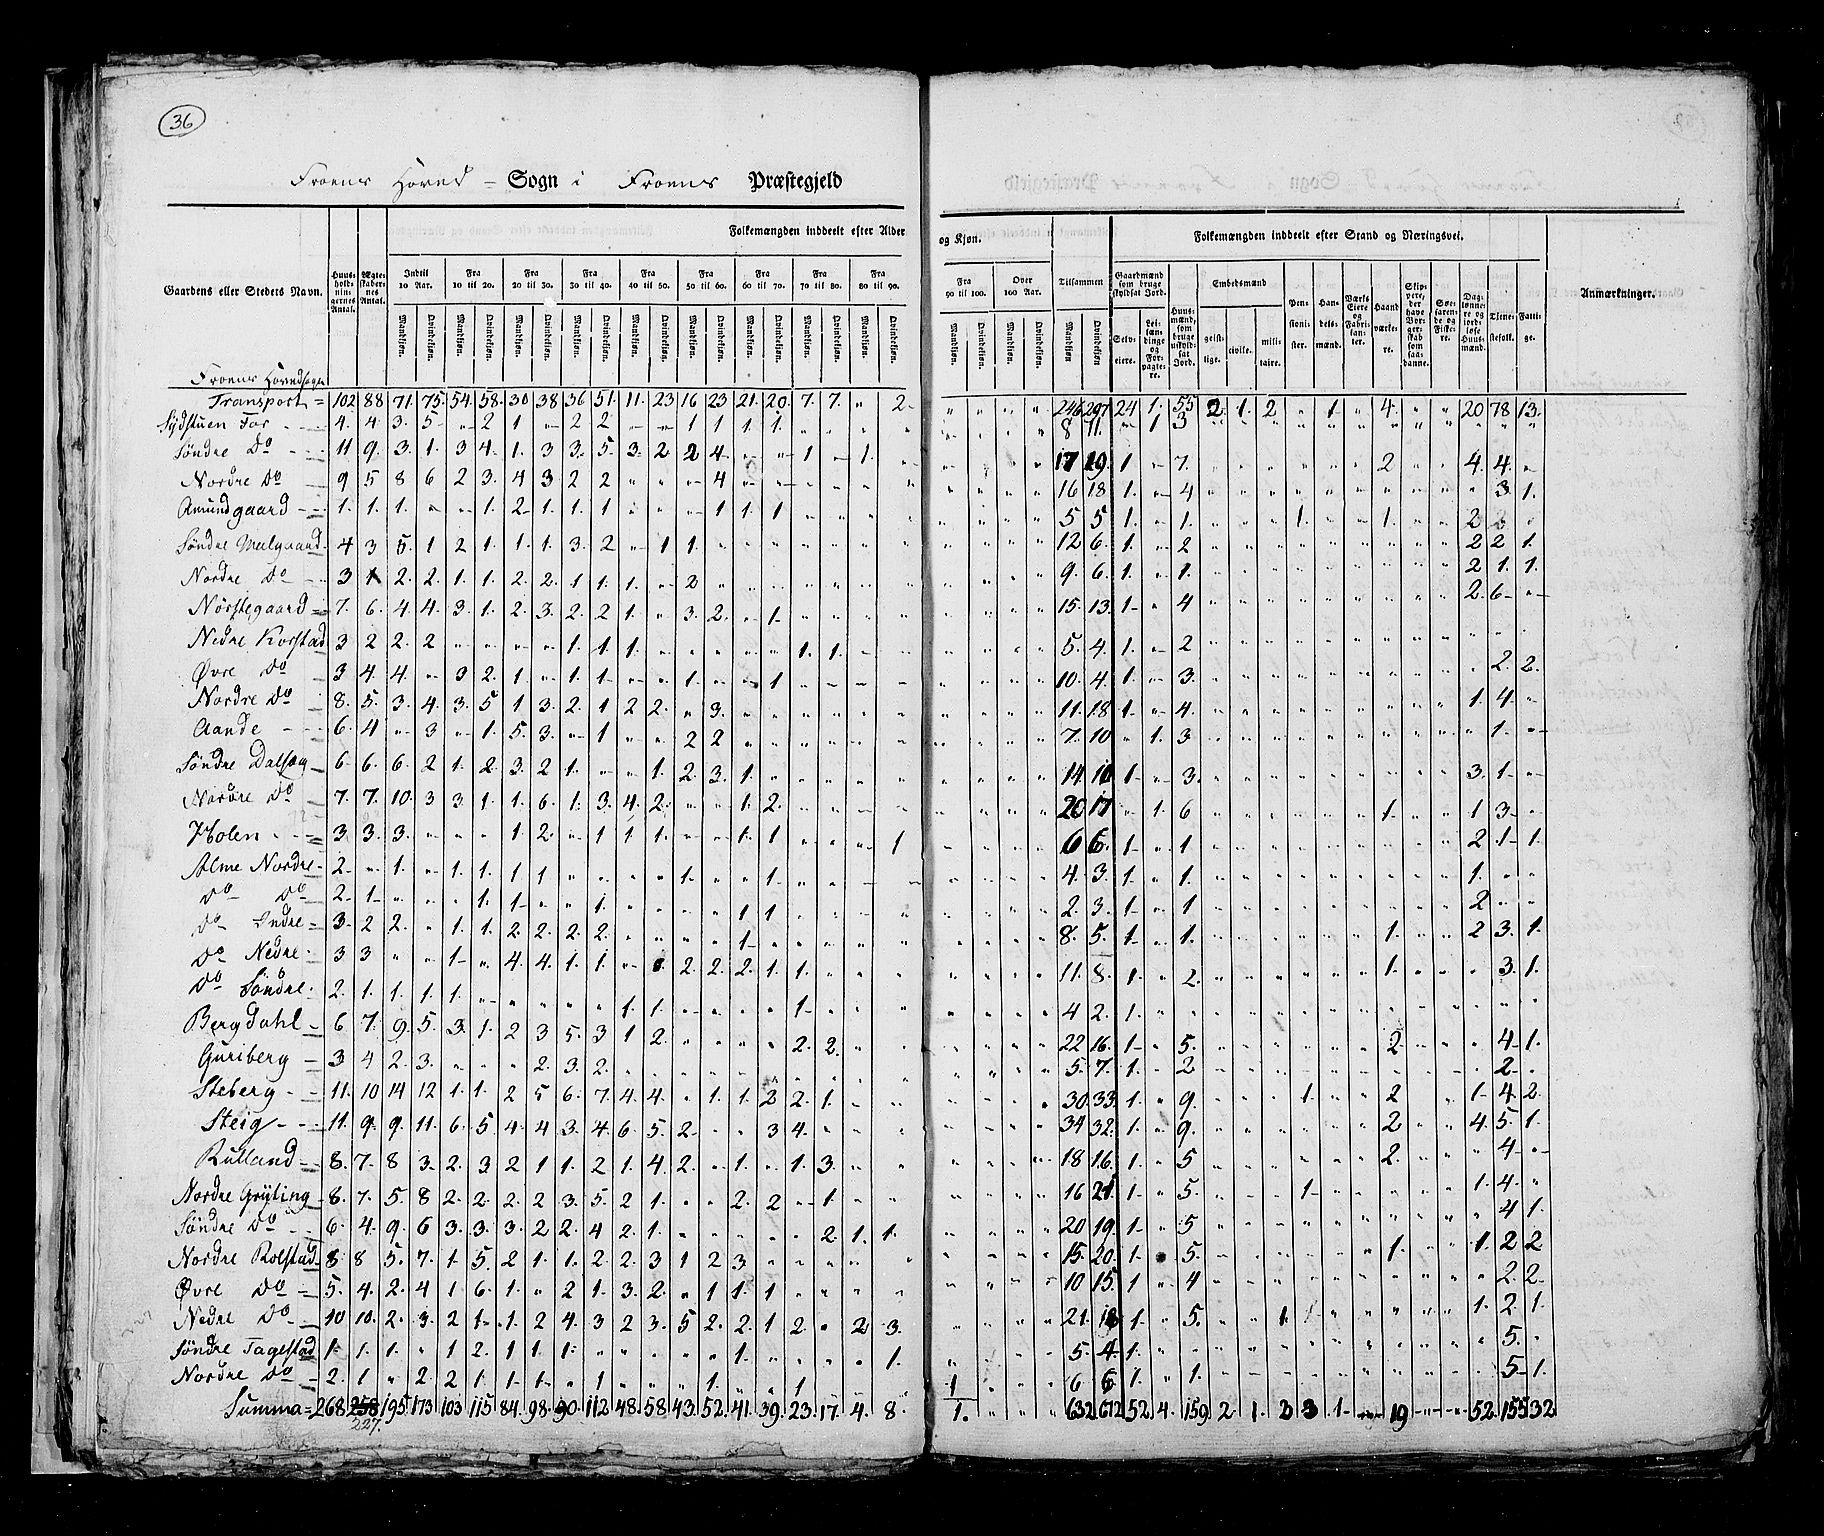 36
Froens Hoved - Sogn i Froens Præstegjeld
Gaardens eller Stedets Navn. Huusholdningernes Antal. Ægteskabernes Antal. Folkemængden inddeelt efter Alder og Kjøn. Folkemængden inddeelt efter Stand og Næringsvei. Anmærkninger.
Indtil 10 Aar. Fra 10 til 20. Fra 20 til 30. Fra 30 til 40. Fra 40 til 50. Fra 50 til 60. Fra 60 til 70. Fra 70 til 80. Fra 80 til 90. Fra 90 til 100. Over 100 Aar. Tilsammen
Gaardmænd som bruge skyldsat Jord. Huusmænd, som bruge uskyldsat Jord. Embedsmænd Pensionister. Handelsmænd. Værks Eiere og Fabrikanter. Haandværkere. Skippere, der have Borgerskab som saadanne. Søefarende og Fiskere. Daglønnere og jordløse Huusmænd. Tjenestefolk. Fattige.
Mandkjøn. Qvindekjøn. Selveiere. Leilændinge og Forpagtere. geistlige. civile. militaire.
Froens Hovedsogn
Transport = 102 88 71. 75. 54. 58. 30 38 36 51. 11. 23 16 23 21. 20. 7. 7. " 2. " " " " 246 297 24 1. 55 2. 1. 2 " 1. " 4. " " 20 78 13.
Sydstuen For 4. 4. 3. 5 " 2 1 " 2 2 " " 1 1 1. 1. 8 11. " 1 3
Søndre Do 11 9. 3. 1. 3 4. 1. 3 3. 5 3. 2. 2 4 " " 1 " 1. 17 19. 1 " 7. 2 4. 4.
Nordre Do 9 5 8 6 2 3. 4 3 2 2 " " " 4 16 18 1. " 4 3 1.
Amundgaard 1. 1. 1. " " 1. 2 1. 1. 1 " " " 1 1. 1 5 5 1. " 1. 1. 1. 2
Søndre Melgaard 4 3 5. 1 2 1. 1. 1. 3. 2 " 1 1. 12 6. 1. " 2 2 2 1.
Nordre Do 3 1 2. 2. 1. 1. 2. 2. 1 1. 1. " 2 9. 6. 1. " 1. 2 1. 1.
Nørstegaard 7. 6. 4. 4. 3. 1. 2. 3. 2. 2 1. " 3. 2. " 1. 15. 13. 1 " 4 2. 6
Nedre Korstad 3 2 2. 2 " " " " 1. 1. 1. 1. 1. 5. 4. 1. " 2
Øvre Do 3 4. 4. " 3 2. 1. " 1. 1. " " 1. " " 1 10. 4. 1. " 3. 2. 2.
Nordre Do 8. 5. 3. 4. 3. 5 1 3. 2. 1 2 2. " 3. 11. 18 1. " 4. 1. 4.
Aande 6. 4 " 3 " 1. 5. 3. " 1 " " 2 2 7. 10 " 1. 3 1.
Søndre Dalseg 6 6. 6. 2 1. 2. 3. 2 1. " " 1. 2. 3. 1. 14. 10 1 " 3. 3. 1
Nordre Do 7. 7. 10. 3 3. 1 1. 6. 1. 3. 4. 2. " " 1. 2. 20 17 " 1. 6 1. 1 3
Holen 3 3. 3. " " " 1. 2. " 1 1. 1 " " 1. 1 " " " 1 6 6. 1 " 1 2 1 1.
Alme Nordre 2. " 1. " 1. 1. 1. 1 " " " " 1. " " 1. 4. 3. 1. " 1. 1.
Do Do 2. 1. " " " 1. 1. " " 1. " " " " 1 1. 2. 3. 1 " 1 2
Do Indre 3. 2 2. " 1. 1. 2. 2. 2. 2. " " " " 1 8. 5. 1 " 1. 1. 2 3. 1.
Do Nedre 3 3 " " 1 " 4. 4. 1. 1. " 2. 2. 2. 1. 1. 11. 8. 1. " 2. 1. 3. 1.
Do Søndre 2. 1. 1. 1. 1. " " " " " 1. 1. " " " " 1. 4 2. 1.
Bergdahl 6 7. 9. 5. 3. 1. 2 3 5. 3 1 2. " " " " 2. 2. 22 16. 1 " 5. 2 4 1.
Guriberg 3 4 2. 3. " " " 2. 3. 2. 5. 7. 1. " 2 2
Steberg 11. 10 14 12 1. 1. 2 5 6. 7. 4. 4. " 1. 1. 2 2. 1. 30. 33. 1. " 9. 1. 2 1. 4. 2.
Steig 11. 9. 9. 11. 6. 5. 4. 4 3. 4. 6. 5. 2 " " 3 4. 34 32. 1. " 9. 2 4. 5. 1.
Rulland 8. 7. 8 3. 2. 3 2 1 1. 2 1. 4 2. " 1. " 1. 3. 18 16. 1. " 5 2. 4
Nordre Gryting 8. 7. 5 8 2. 2. 2. 2 3. 5. 2 1. " " 2. 2. " 1. 16 21 1. " 5. 1 1. 4.
Søndre Do 6. 4. 9. 6 3. 3. 3. 2 2. 4 2. 1. " " " " " 2. 1. 1. 20 19. 1 " 5 4 1.
Nordre Rolstad 8 8 5. 7. 1 5. 2 1. 1. 2 2. 3 1 2 3 15. 20. 1. " 5. 1. 1. 2 2
Øvre Do 5. 4. 2. 4 1 6. 1. " 2 1. 3. 2. " 1 1. 1 10 15. 1 " 4 2. 2
Nedre Do 10 10. 2. 3. 2 1. 1. 2 4. 3 2 3. 5 2. 2. 1 2. " 2 3. 21. 18 1. " 5. 1. 1. 2. 1.
Søndre Tagestad 1. 1. " 1 2. 1 1. 1. " " " " " " 1. " " " " 1. 5. 4. 1. 5.
Nordre Do 2. 1 " 2. 2 1. 1. 1. " 1 " " " 1. " " 1 1 6 6 1. " 1. 5 1.
Summa = 268 258 195. 173 103 115. 84. 98. 90. 112 48. 58 43. 52. 41. 39. 23. 17. 4. 8. 1. " " " 632 672 52 4. 159. 2 1. 2 3 1 " 19 " " 52. 155 32
227.